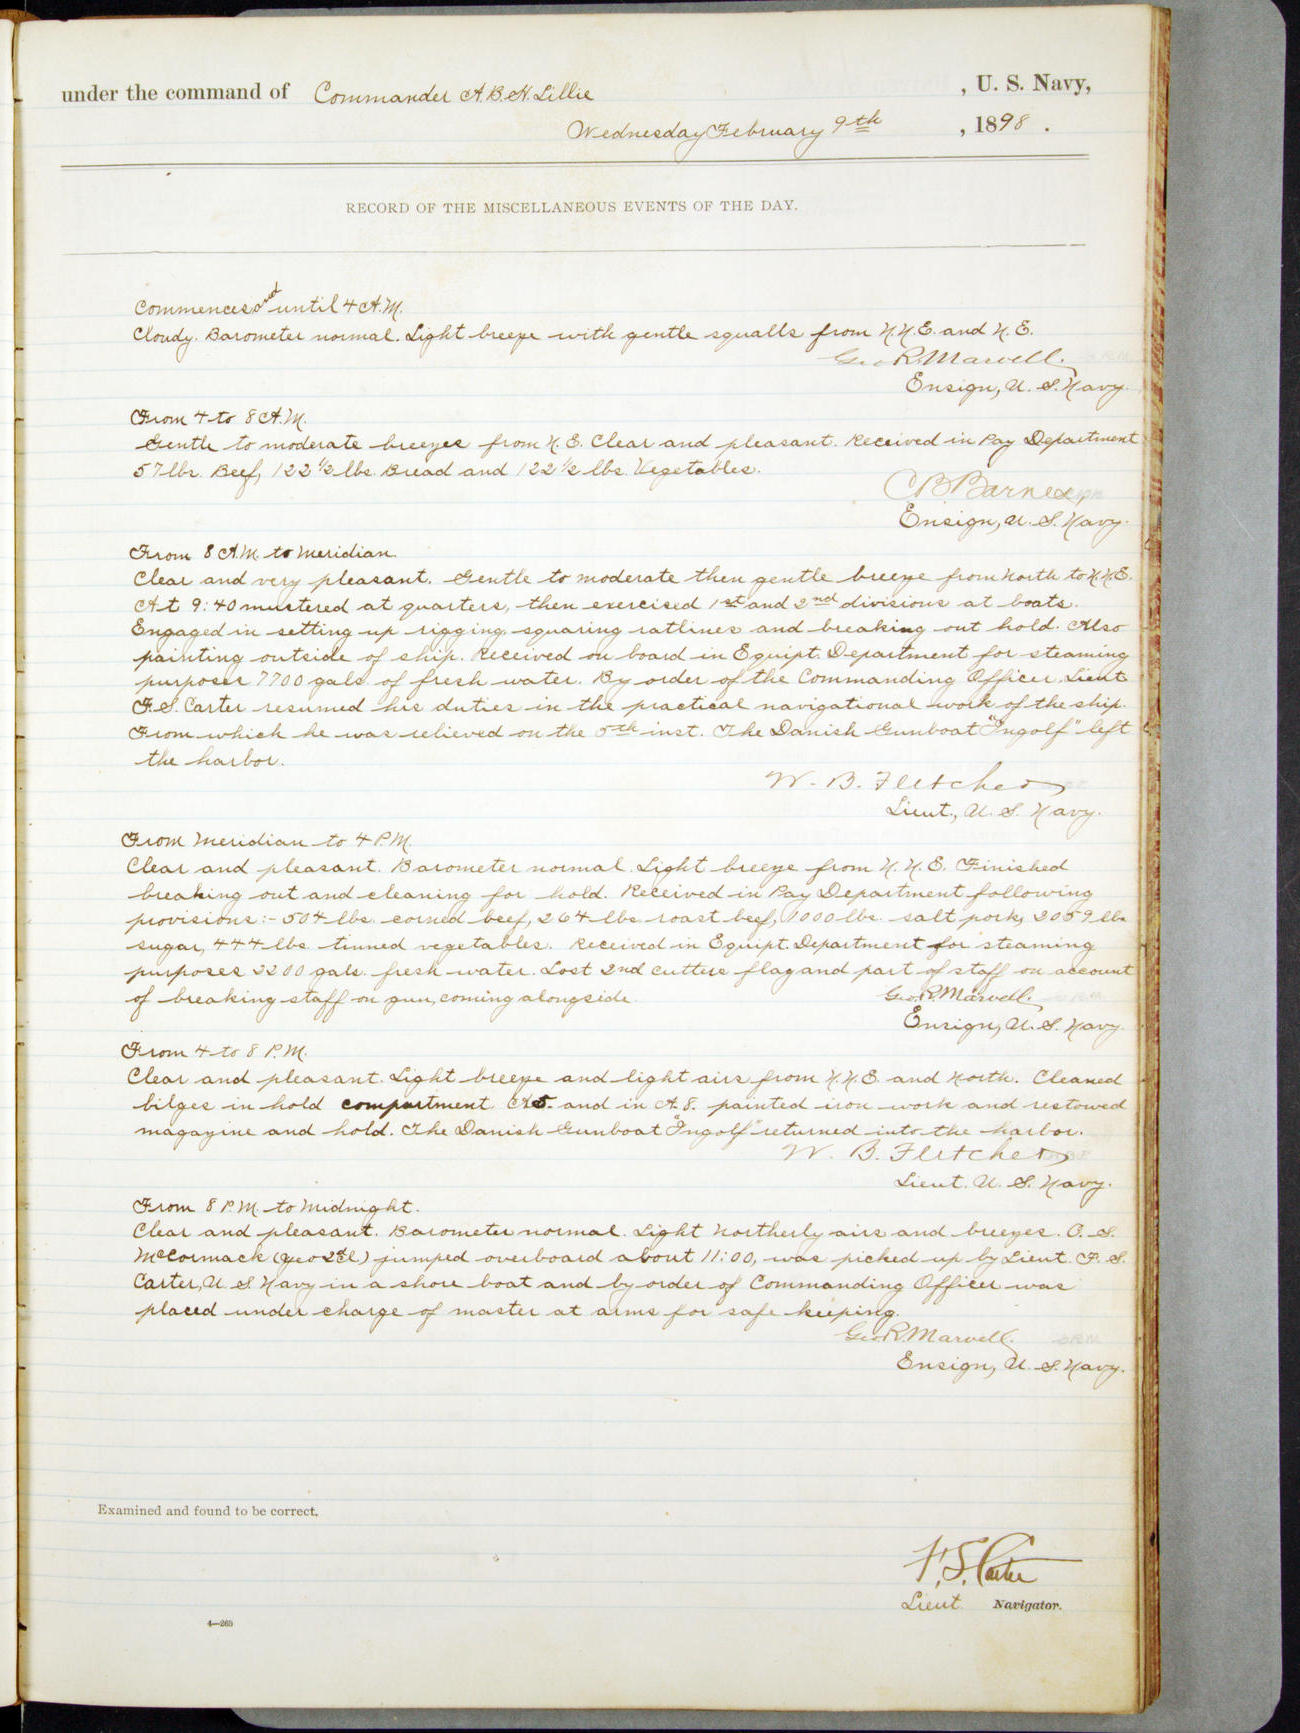 under the command of Commander A.B.H. Lillie , U. S. Navy,
Wednesday February 9th , 1898 .
RECORD OF THE MISCELLANEOUS EVENTS OF THE DAY.
Commences and until 4 A.M.
Cloudy. Barometer normal. Light breeze with gentle squalls from N.N.E. and N.E.
Geo R. Marvell.
Ensign, U. S. Navy.
From 4 to 8 A.M.
Gentle to moderate breezes from N.E. Clear and pleasant. Received in Pay Department
57 lbs. Beef, 122 1/2 lbs. Bread and 122 1/2 lbs. Vegetables.
C B Barnes,
Ensign, U. S. Navy.
From 8 A.M. to Meridian.
Clear and very pleasant. Gentle to moderate then gentle breeze from North to N.N.E.
At 9:40 mustered at quarters, then exercised 1st and 2nd divisions at boats.
Engaged in setting up rigging, squaring ratlines and breaking out hold. Also
painting outside of ship. Received on board in Equipt. Department for steaming
purposes 7700 gals. of fresh water. By order of the Commanding Officer Lieut
F. S. Carter resumed his duties in the practical navigational work of the ship.
From which he was relieved on the 5th inst. The Danish Gunboat "Ingolf" left
the harbor.
W. B. Fletcher
Lieut., U. S. Navy.
From Meridian to 4 P.M.
Clear and pleasant. Barometer normal. Light breeze from N.N.E. Finished
breaking out and cleaning for hold. Received in Pay Department following
provisions:- 504 lbs. corned beef, 264 lbs. roast beef, 1000 lbs. salt pork, 2059 lbs
sugar, 444 lbs. tinned vegetables. Received in Equipt. Department for steaming
purposes 2200 gals. fresh water. Lost 2nd cutters flag and part of staff on account
of breaking staff on gun, coming alongside.
Geo. R. Marvell.
Ensign, U. S. Navy.
From 4 to 8 P.M.
Clear and pleasant. Light breeze and light airs from N.N.E. and North. Cleaned
bilges in hold compartment A5. and in A.8. painted iron work and restowed
magazine and hold. The Danish Gunboat "Ingolf" returned into the harbor.
W. B. Fletcher
Lieut. U. S. Navy.
From 8 P.M. to Midnight.
Clear and pleasant. Barometer normal. Light Northerly airs and breezes. O. S.
McCormack jumped overboard about 11:00, was picked up by Lieut. F. S.
Carter, U. S. Navy in a shore boat and by order of Commanding Officer was
placed under charge of master at arms for safe keeping.
Geo R. Marvell.
Ensign, U. S. Navy.
Examined and found to be correct.
F. S. Carter
Lieut. Navigator.
4—265